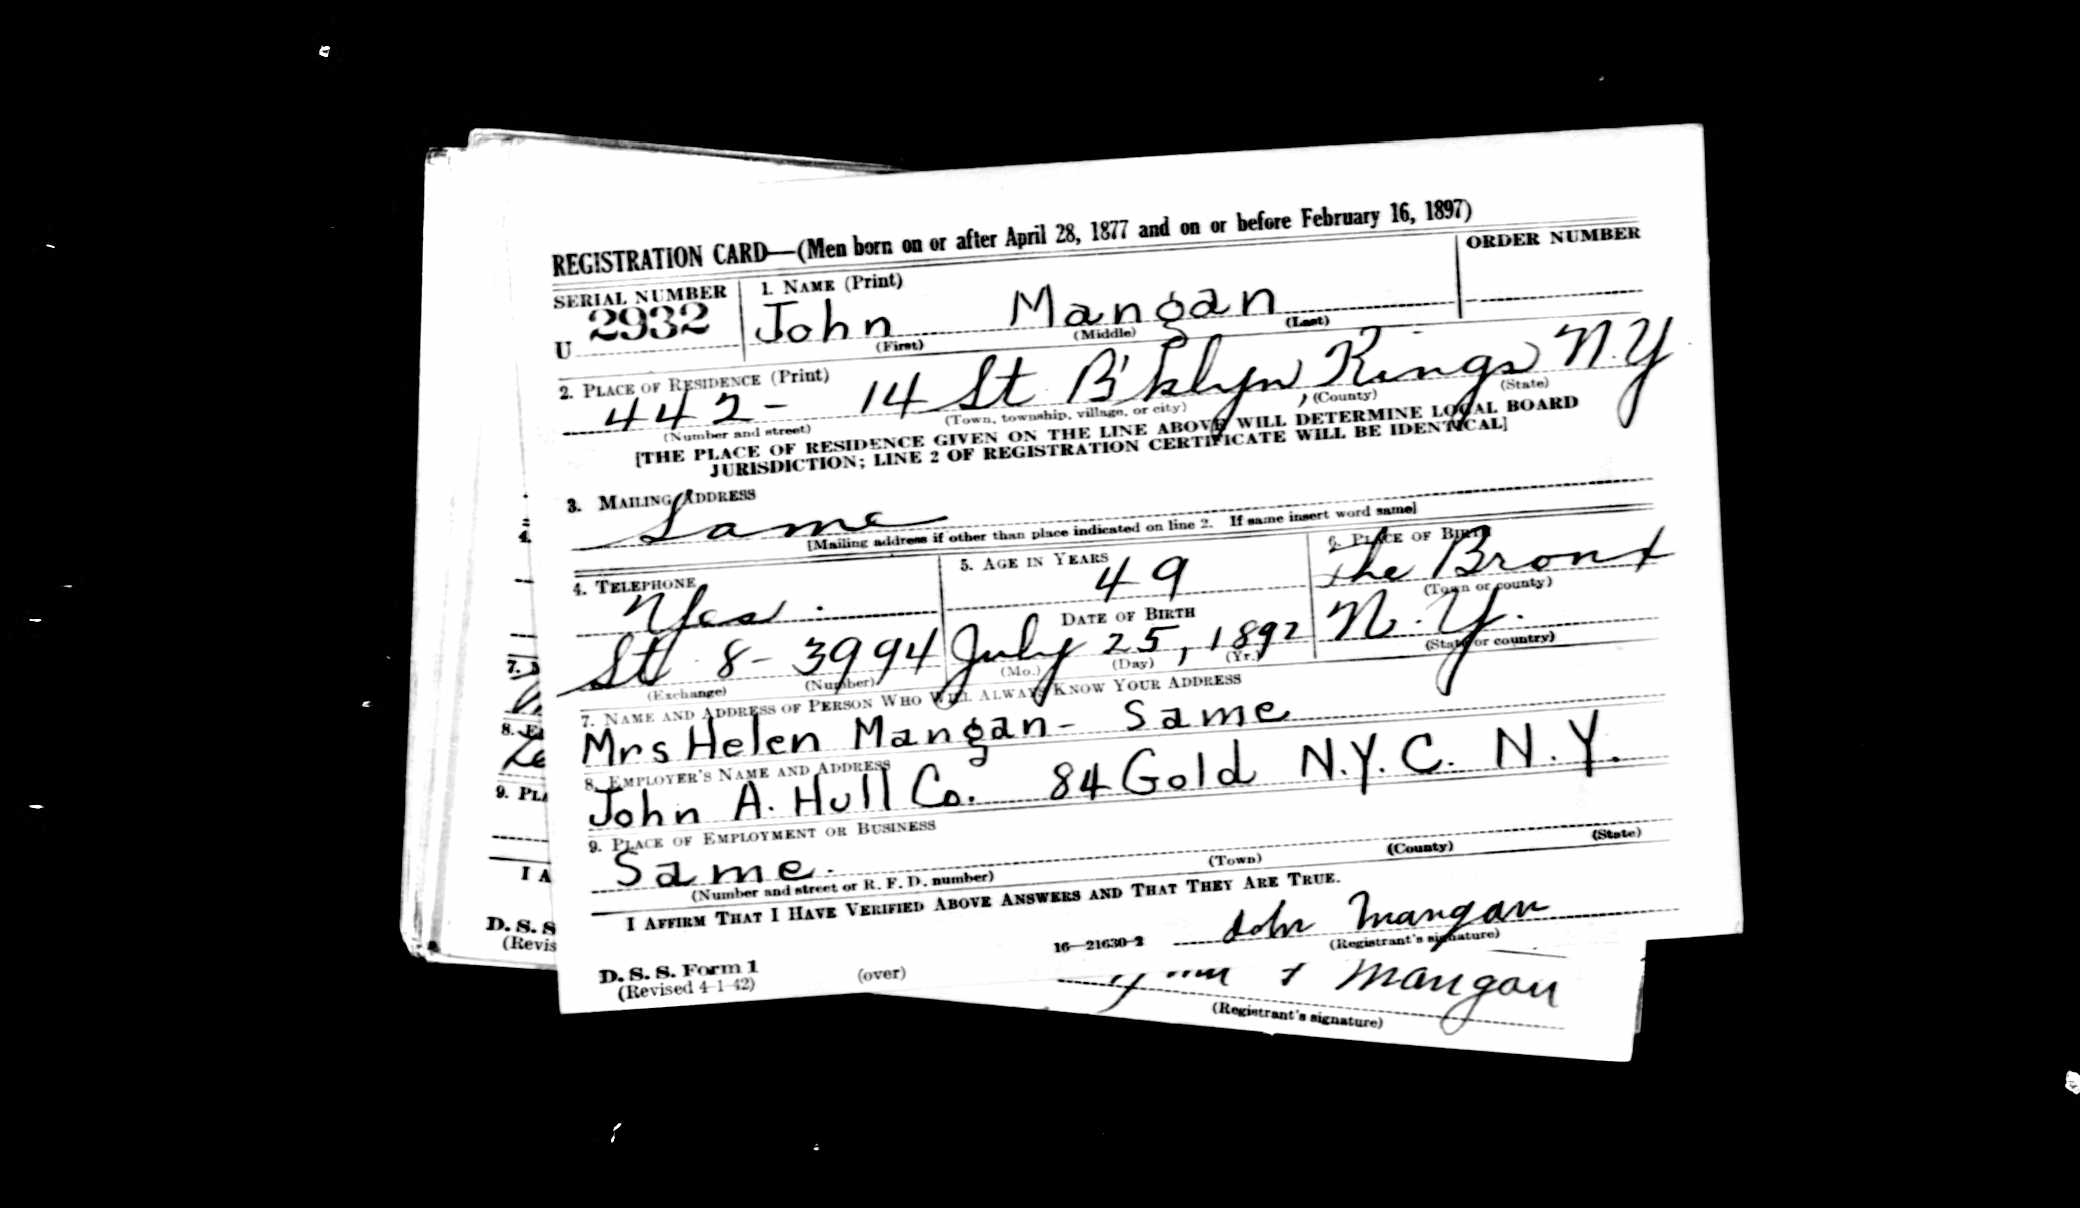 REGISTRATION CARD—(Men born on or after April 28, 1877 and on or before February 16, 1897)
SERIAL NUMBER
1. NAME (Print)
ORDER NUMBER
U 2932
John Mangan
(First) (Middle) (Last)
2. PLACE OF RESIDENCE (Print)
442- 14 St B'klyn Kings N.Y
(Number and street) (Town, township, village, or city) (County) (State)
[THE PLACE OF RESIDENCE GIVEN ON THE LINE ABOVE WILL DETERMINE LOCAL BOARD
JURISDICTION; LINE 2 OF REGISTRATION CERTIFICATE WILL BE IDENTICAL]
3. MAILING ADDRESS
Same
[Mailing address if other than place indicated on line 2. If same insert word same]
4. TELEPHONE
Yes.
St 8-3994
(Exchange) (Number)
5. AGE IN YEARS
49
DATE OF BIRTH
July 25, 1892
(Mo.) (Day) (Yr.)
6. PLACE OF BIRTH
The Bronx
(Town or county)
N.Y.
(State or country)
7. NAME AND ADDRESS OF PERSON WHO WILL ALWAYS KNOW YOUR ADDRESS
Mrs Helen Mangan- Same
8. EMPLOYER'S NAME AND ADDRESS
John A. Hull Co. 84 Gold N.Y.C. N.Y.
9. PLACE OF EMPLOYMENT OR BUSINESS
Same.
(Number and street or R. F. D. number) (Town) (County) (State)
I AFFIRM THAT I HAVE VERIFIED ABOVE ANSWERS AND THAT THEY ARE TRUE.
John Mangan
16—21630-2 (Registrant's signature)
D. S. S. Form 1
(Revised 4-1-42) (over)
4.
7.
8.
9. PLA
I A
D. S. S
(Revis
Mangan
(Registrant's signature)